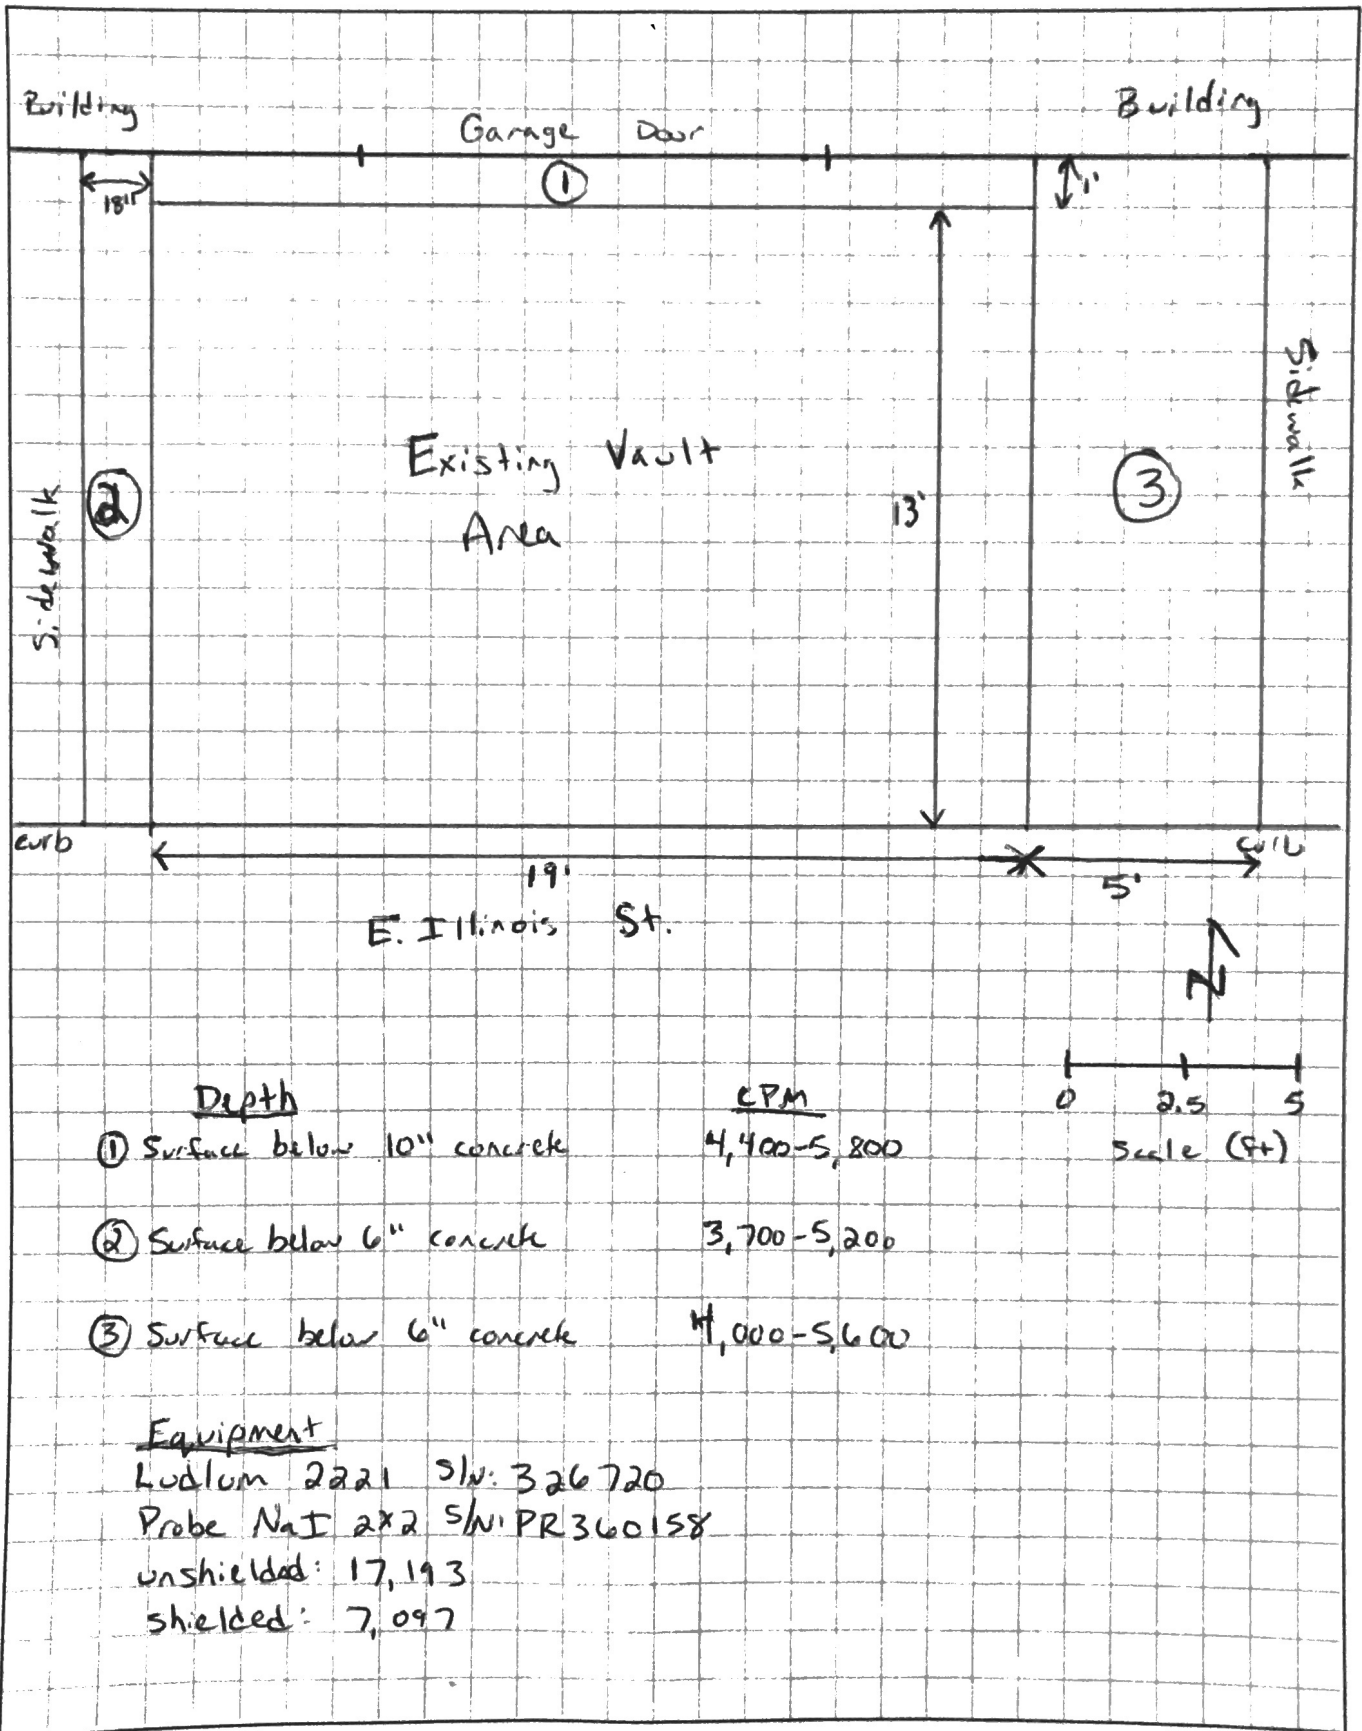 Building
Building
Garage Door
①
18"
1'
Existing Vault
Area
13'
Sidewalk
②
③
Sidewalk
curb
curb
19'
5'
E. Illinois St.
N
Depth
CPM
0 2.5 5
Scale (ft)
① Surface below 10" concrete 4,400-5,800
② Surface below 6" concrete 3,700-5,200
③ Surface below 6" concrete 4,000-5,600
Equipment
Ludlum 2221 S/N: 326720
Probe NaI 2x2 S/N: PR360158
unshielded: 17,193
shielded: 7,097